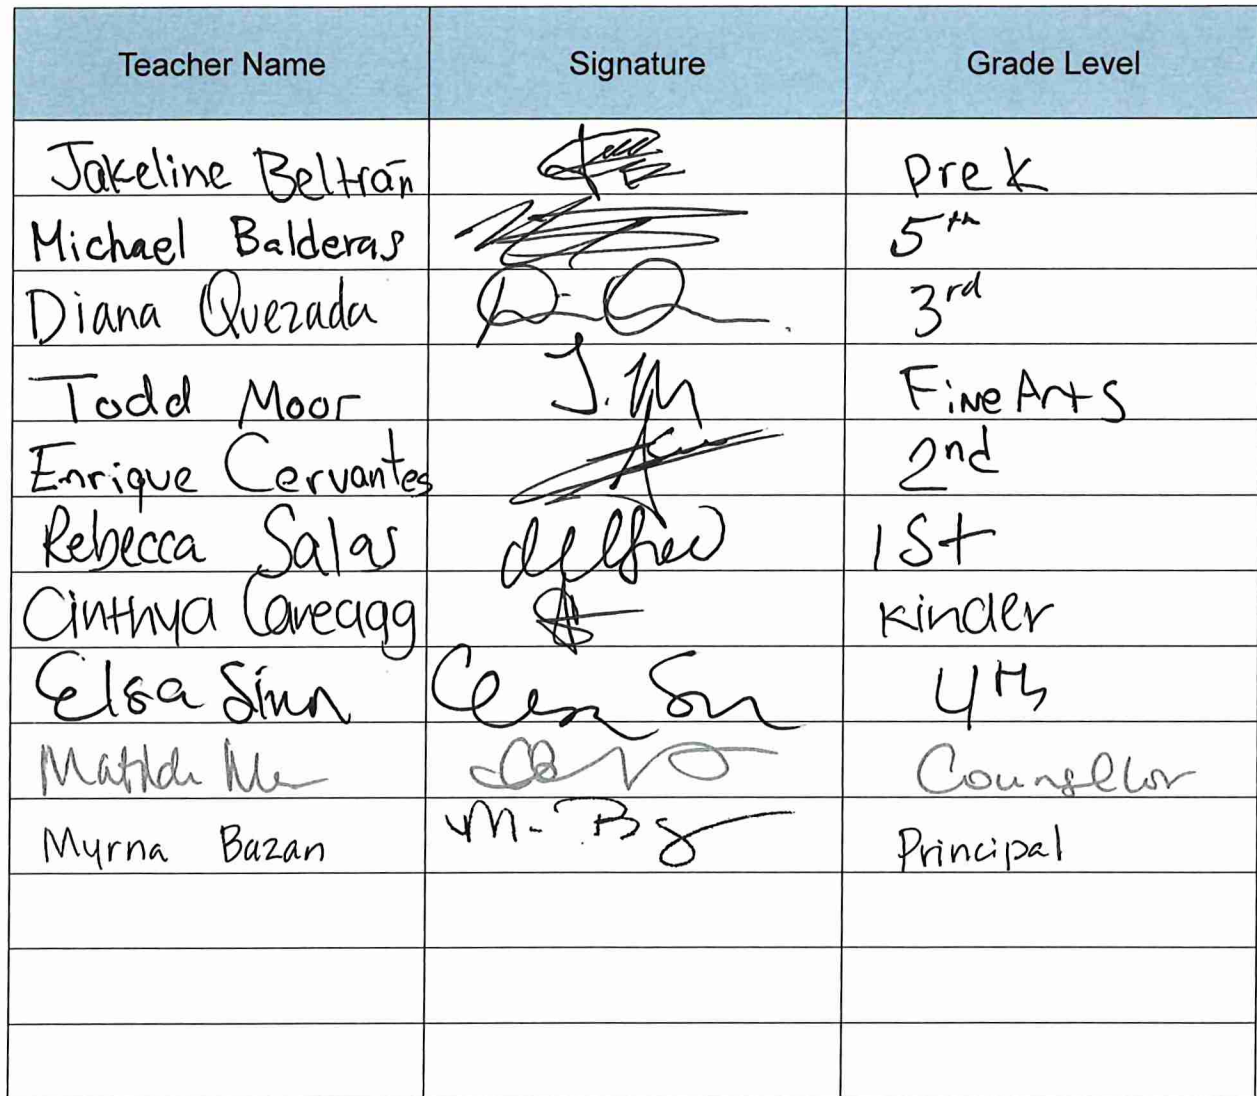 Teacher Name Signature Grade Level
Jakeline Beltrán Pre K
Michael Balderas 5th
Diana Quezada 3rd
Todd Moor J. M Fine Arts
Enrique Cervantes 2nd
Rebecca Salas 1st
Cinthya Careaga Kinder
Elsa 4th
Counsellor
Myrna Bazan M. B Principal